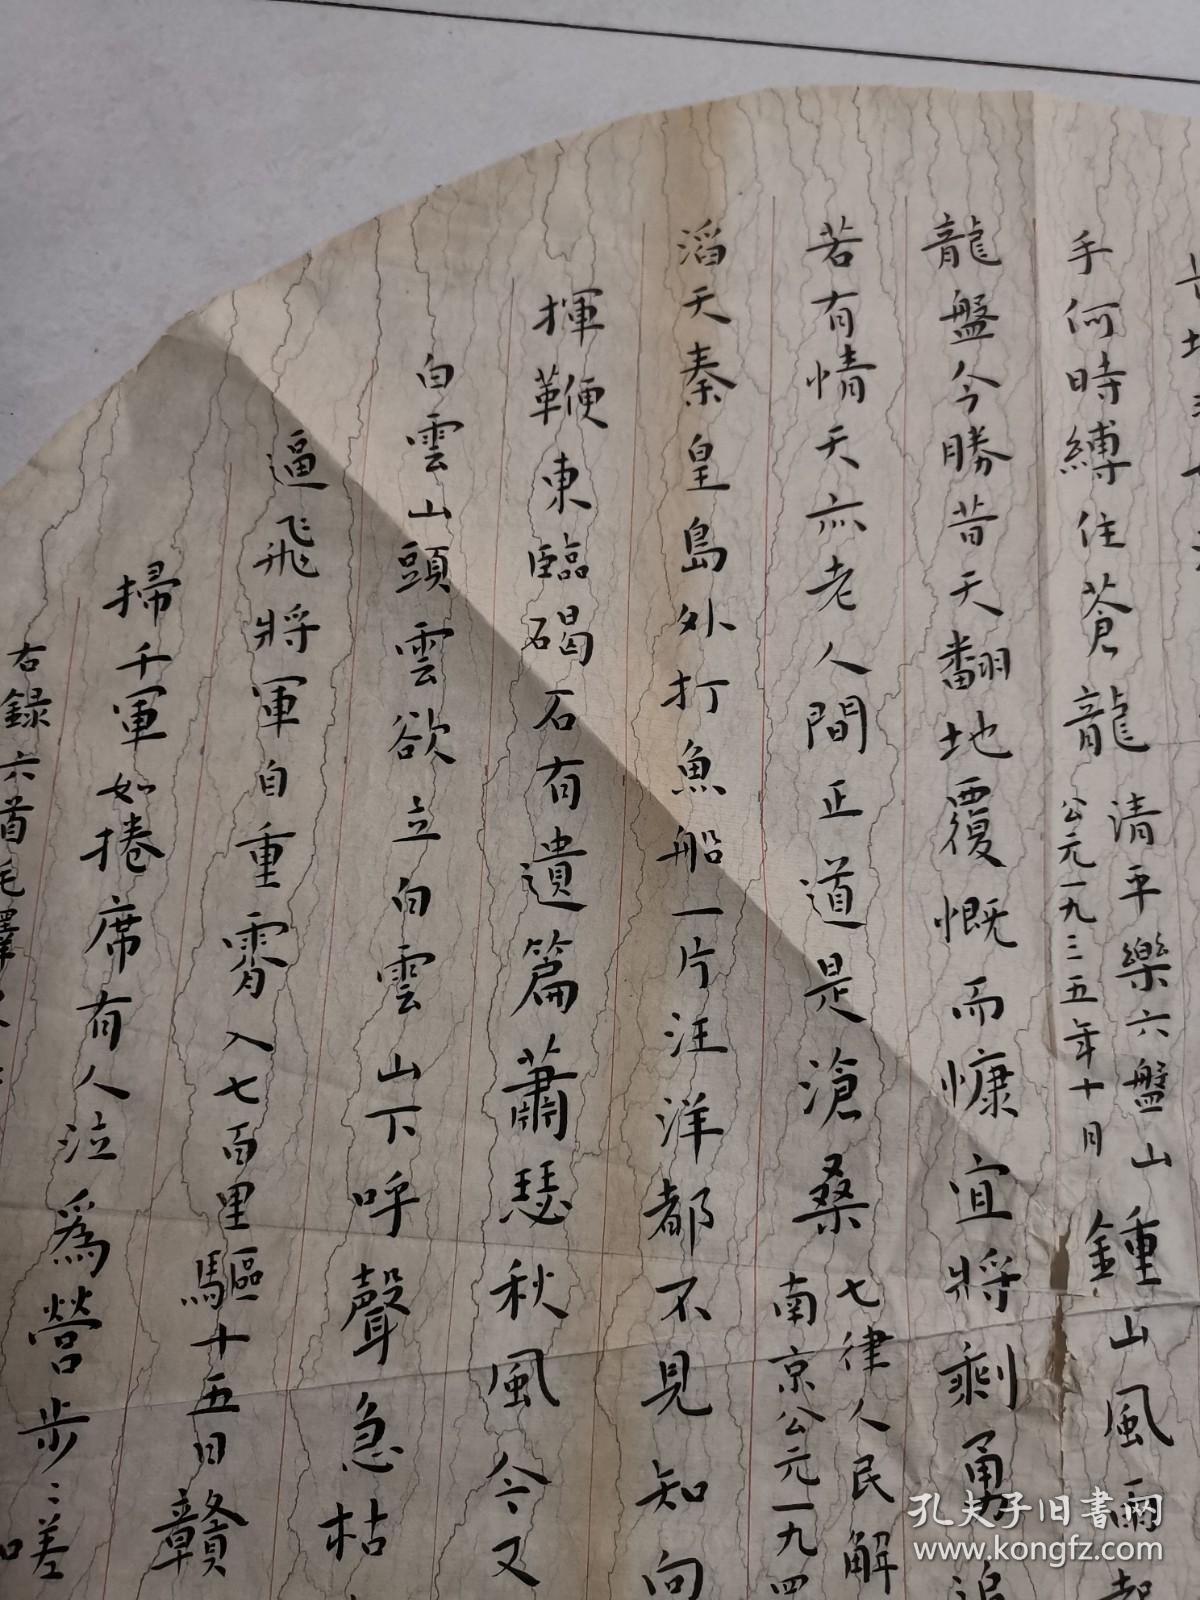 手何時縛住蒼龍
清平樂六盤山
公元一九三五年十月
鍾山風雨起
龍盤今勝昔天翻地覆慨而慷宜將剩勇追
若有情天亦老人間正道是滄桑
七律人民解
南京公元一九四
滔天秦皇島外打魚船一片汪洋都不見知向
揮鞭東臨碣石有遺篇蕭瑟秋風今又
白雲山頭雲欲立白雲山下呼聲急枯
逼飛將軍自重霄入七百里驅十五日贛
掃千軍如捲席有人泣為營步〻嗟
右錄六首毛澤
孔夫子旧书网
www.kongfz.com